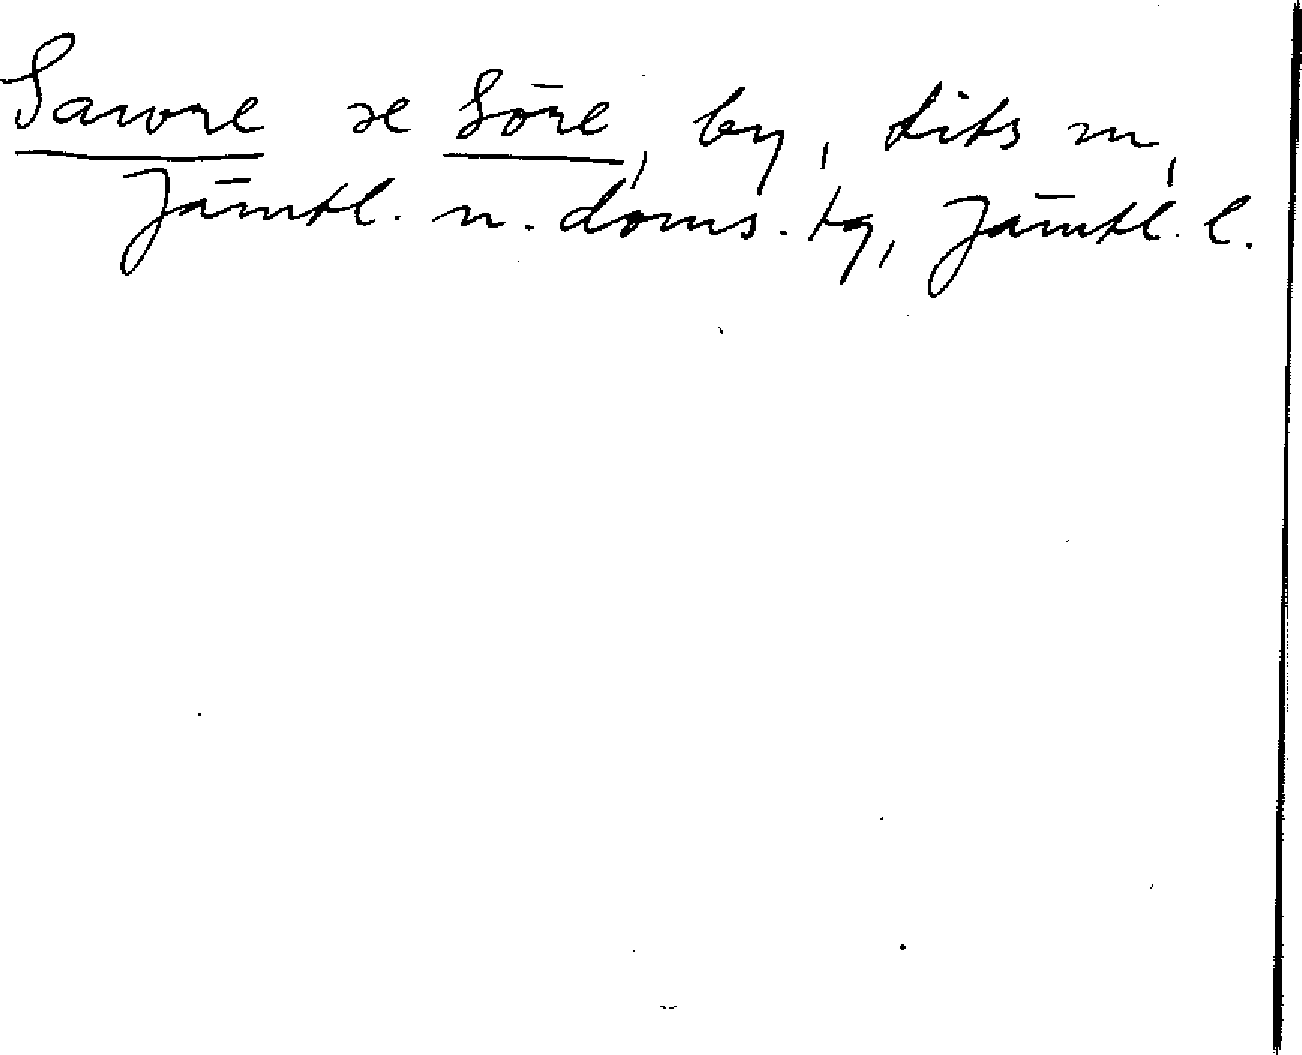 Sawre se Söre, by, Lits sn,
Jämtl. n. doms. tg, Jämtl. l.